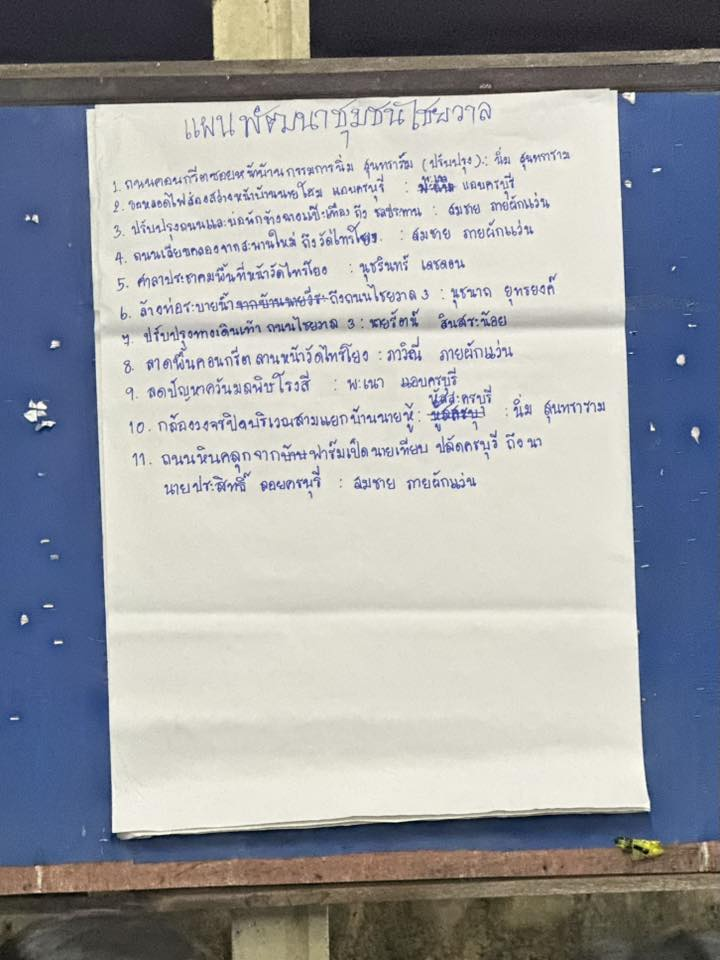 แผนพัฒนาชุมชนไชยวาล
1. ถนนคอนกรีตซอยหน้าบ้านกรรมการนิ่ม สุนทราราม (ปรับปรุง) : นิ่ม สุนทราราม
2. ขอหลอดไฟส่องสว่างหน้าบ้านนายโสม แอบครบุรี : แอบครบุรี
3. ปรับปรุงถนนและบ่อพักข้าง ถึง ชลประทาน : สมชาย ภายผักแว่น
4. ถนนเลียบคลองจากสะพานใหม่ ถึงวัดไทรโยง : สมชาย ภายผักแว่น
5. ศาลาประชาคมพื้นที่หน้าวัดไทรโยง : นุชรินทร์ เดชดอน
6. ล้างท่อระบายน้ำจากบ้านนายวีระ ถึงถนนไชยวาล 3 : นุชนาถ ยุทธยงค์
7. ปรับปรุงทางเดินเท้า ถนนไชยวาล 3 : นายรัตน์ สินสระน้อย
8. ลาดพื้นคอนกรีต ลานหน้าวัดไทรโยง : ภาวิณี ภายผักแว่น
9. ลดปัญหาควันมลพิษโรงสี : พะเนา แอบครบุรี
10. กล้องวงจรปิดบริเวณสามแยกบ้านนายหู้ : หู้สระครบุรี : นิ่ม สุนทราราม
11. ถนนหินคลุกจากฟาร์มเป็ดนายเทียบ ปลัดครบุรี ถึง นา
นายประสิทธิ์ ลอยครบุรี : สมชาย ภายผักแว่น